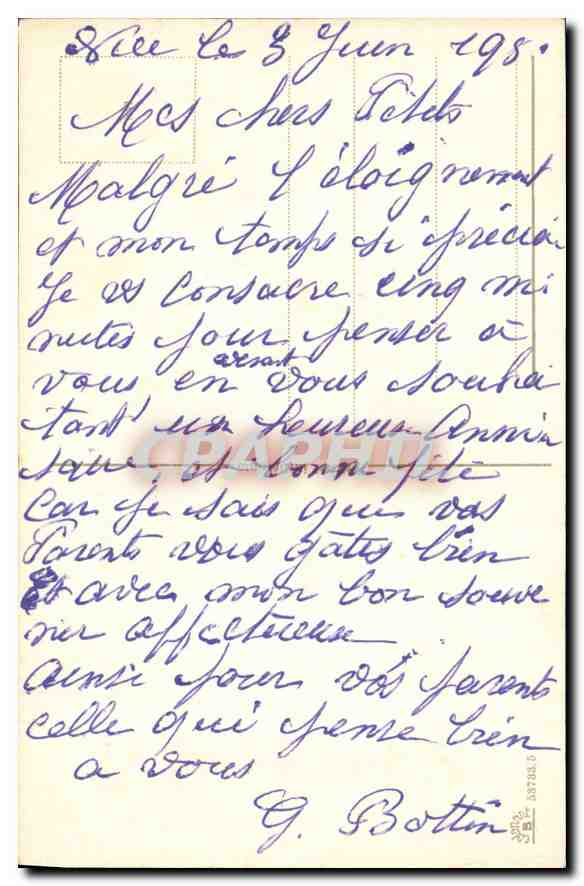 Nice le 3 Juin 195.
Mes chers Petits
Malgré l'éloignement
et mon temps si précieu
Je vs consacre cinq mi
nutes pour penser à
vous en vous souhai
tant un heureux Anniv
et bonne fête
Car je sais que vos
Parents vous gâtes bien
Et avec mon bon souve
nir affectueux
ainsi pour vos parents
celle qui pense bien
a vous
G. Bottin
CPAPHIL
53733.5